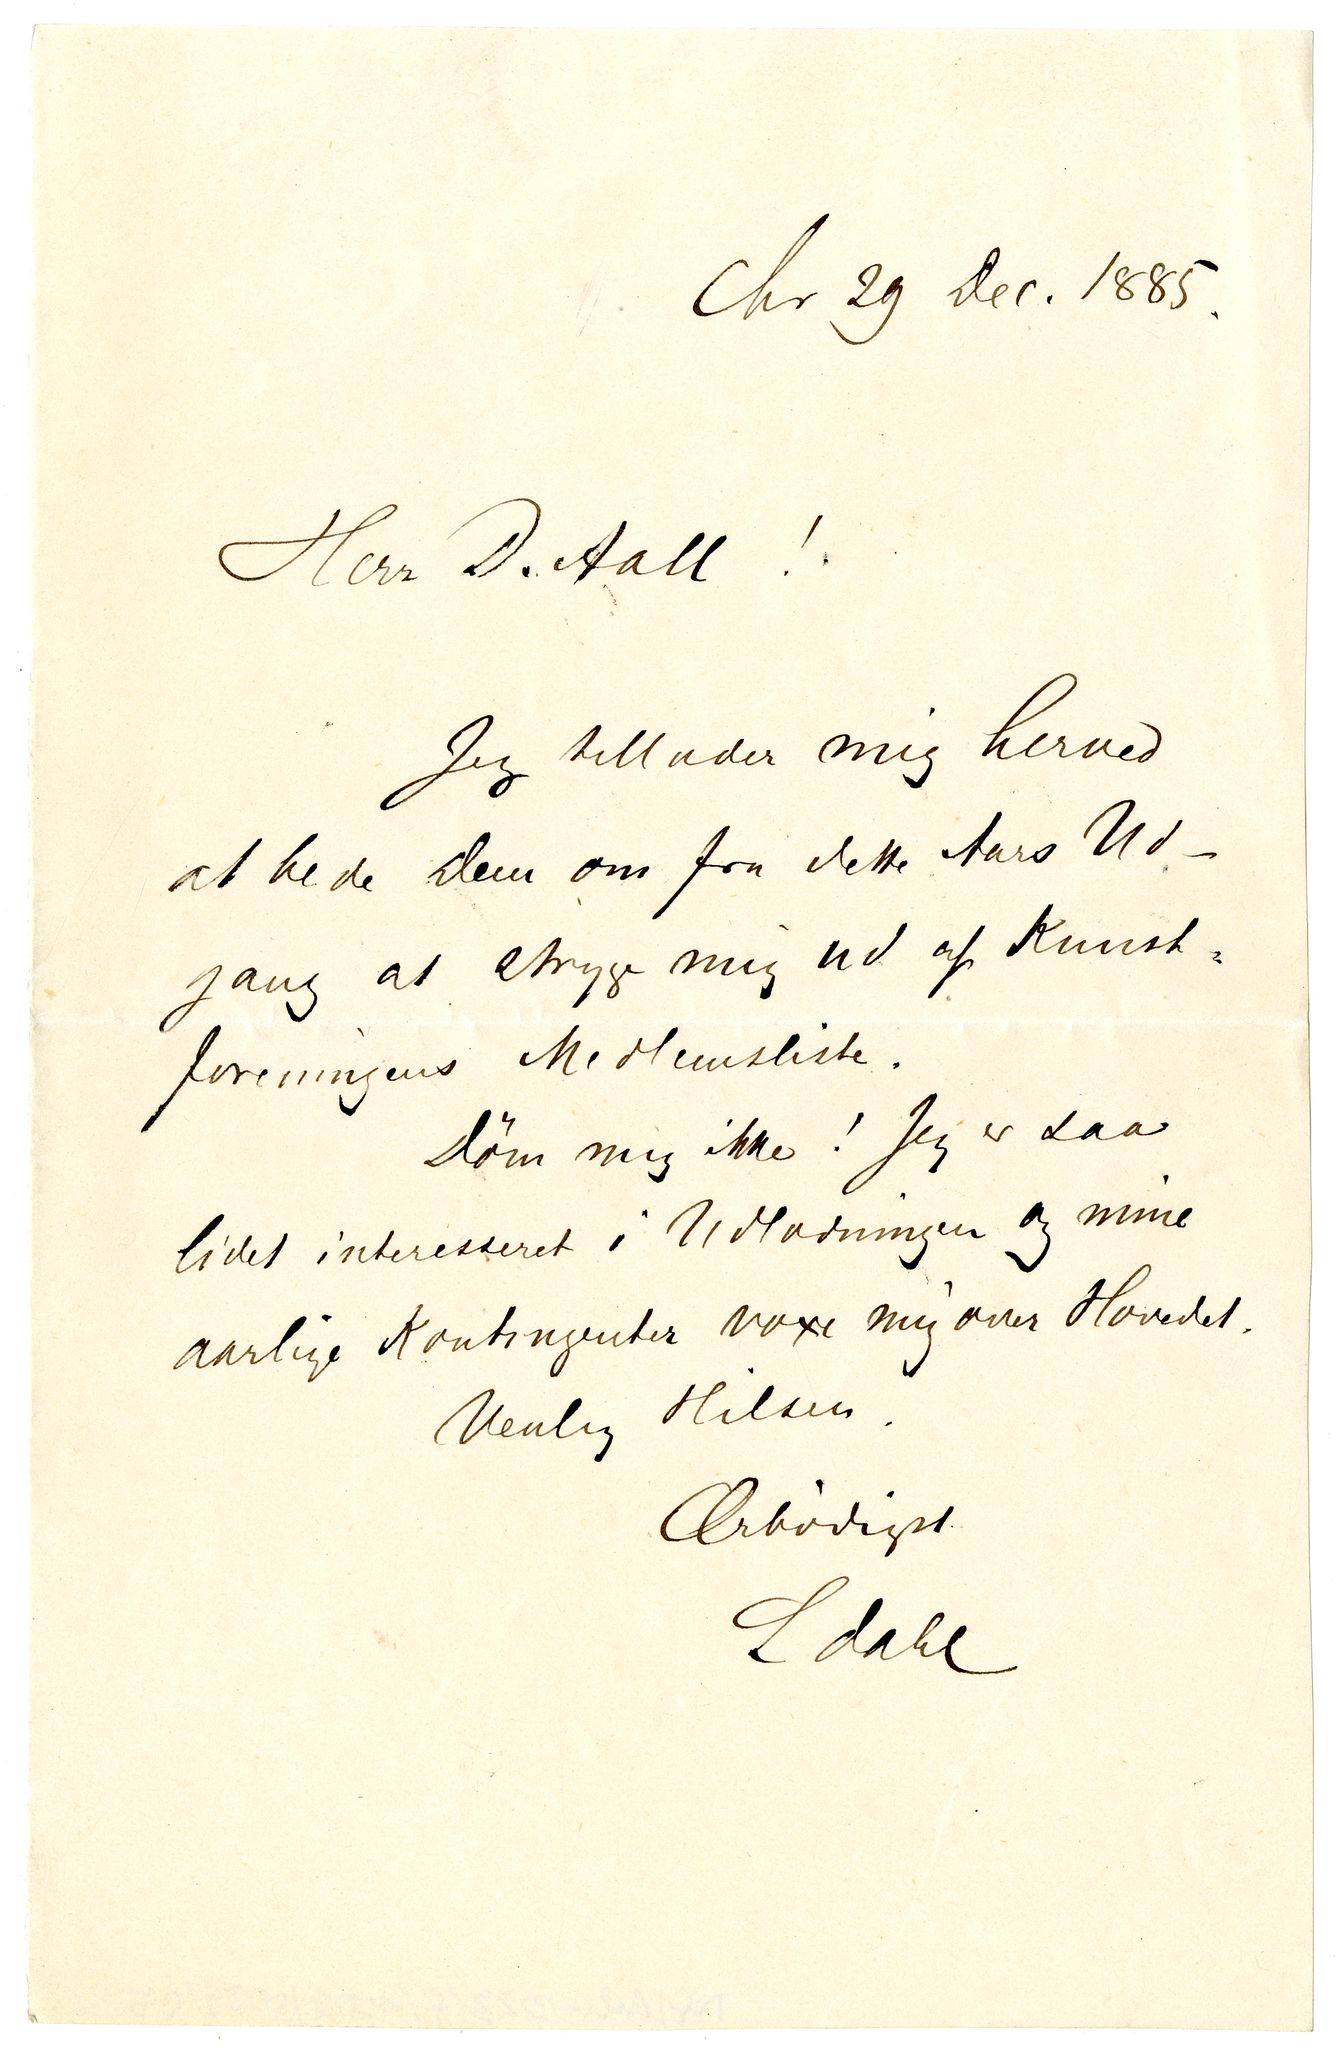 Chr 29 Dec. 1885.
Herr D. Aall !
Jeg tillader mig herved
at bede Dem om fra dette Aars Ud-
gang at stryge mig ud af Kunst-
foreningens Medlemsliste.
Döm mig ikke ! Jeg er saa
lidet interesseret i Udlodningen og mine
aarlige Kontingenter voxe mig over Hovedet.
Venlig Hilsen.
Ærbödigst
L Dahl